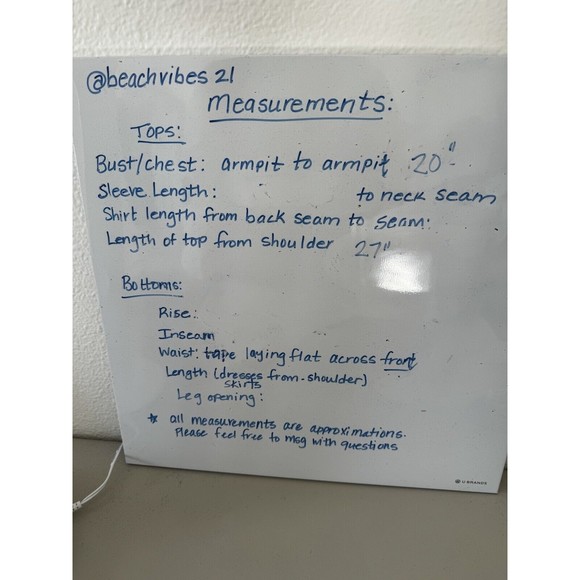 @beachvibes 21
Measurements:
Tops:
Bust/chest: armpit to armpit 20"
Sleeve Length: to neck seam
Shirt length from back seam to seam:
Length of top from shoulder 27"
Bottoms:
Rise:
Inseam
Waist: tape laying flat across front
Length (dresses from-shoulder)
skirts
Leg opening:
* all measurements are approximations.
Please feel free to msg with questions
U BRANDS